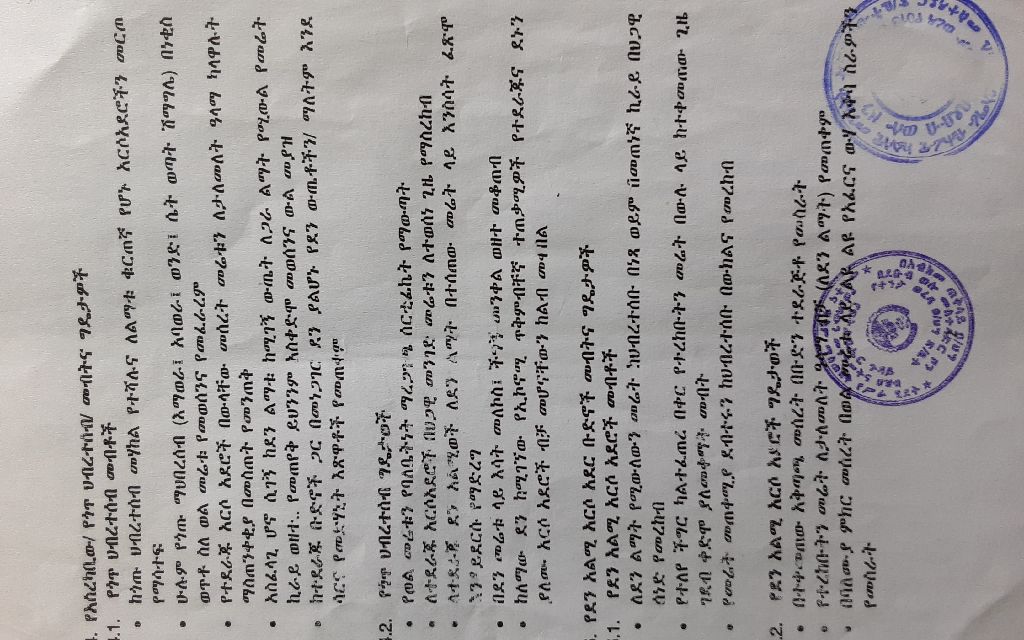 4. የአስረካቢው/ የነጭ ህብረተሰብ/ መብትና ግዴታዎች
4.1. የነጭ ህብረተሰብ መብቶች
• ከነጭ ህብረተሰብ መሃከል የተሻሉና ለልማቱ ቁርጠኛ የሆኑ አርሶአደሮችን መርጦ
ማሳተፍ
• ሁሉም የነጭ ማህበረሰብ (እማወራ፤ አባወራ፤ ወንድ፤ ሴት ወጣት ሽማግሌ) በነቂስ
ወጥቶ ስለ ወል መሬቱ የመወሰንና የመፈራረም
• የተደራጁ አርሶ አደሮች በውላቸው መሰረት መሬቱን ለታለመለት ዓላማ ካላዋሉት
ማስጠንቀቂያ በመስጠት የመንጠቅ
• አስፈላጊ ሆኖ ሲገኝ ከደን ልማቱ ከሚገኝ ውጤት ለጋራ ልማት የሚውል የመሬት
ኪራይ ወዘተ.. የመጠየቅ ይህንንም አስቀድሞ መወሰንና ውል መያዝ
• ከተደራጁ ቡድኖች ጋር በመነጋገር ደን ያልሆኑ የደን ውጤቶችን/ ማለትም እንደ
ሳርና የመድሃኒት እጽዋቶች የመጠቀም
4.2. የነጭ ህብረተሰብ ግዴታዎች
• የወል መሬቱን የባለቤትነት ማረጋገጫ ሰርቲፊኬት የማውጣት
• ለተደራጁ አርሶአደሮች በህጋዊ መንገድ መሬቱን ለተወሰነ ጊዜ የማስረከብ
• ለተደራጁ ደን አልሚዎች ለደን ልማት በተሰጠው መሬት ላይ እንስሳት ፈጽሞ
እንዳይደርሱ የማድረግ
• በደን መሬቱ ላይ እሳት መለኮስ፤ ችግኝ መንቀል ወዘተ መቆጠብ
• ከለማው ደን ከሚገኘው የኢኮኖሚ ጥቅምብቸኛ ተጠቃሚዎች የተደራጁና ደኑን
ያለሙ አርሶ አደሮች ብቻ መሆናቸውን ከልብ መቀበል
የደን አልሚ አርሶ አደር ቡድኖች መብትና ግዴታዎች
.1. የደን አልሚ አርሶ አደሮች መብቶች
• ለደን ልማት የሚውለውን መሬት ከህብረተሰቡ በነጻ ወይም በመጠነኛ ኪራይ በህጋዊ
ሰነድ የመረከብ
• የተለየ ችግር ካልተፈጠረ በቀር የተረከቡትን መሬት በውሉ ላይ ከተቀመጠው ጊዜ
ገደብ ቀድሞ ያለመቀማት መብት
• የመሬት መጠቀሚያ ደብተሩን ከህብረተሰቡ በውክልና የመረከብ
.2. የደን አልሚ አርሶ አደሮች ግዴታዎች
• በተቀመጠው አቅጣጫ መሰረት በቡድን ተደራጅቶ የመስራት
• የተረከቡትን መሬት ለታለመለት ዓላማ (ለደን ልማት) የመጠቀም
• በባለሙያ ምክር መሰረት በወል መሬቱ ላይ ልዩ ልዩ የአፈርና ውሃ እቀባ ስራዎችን
የመስራት